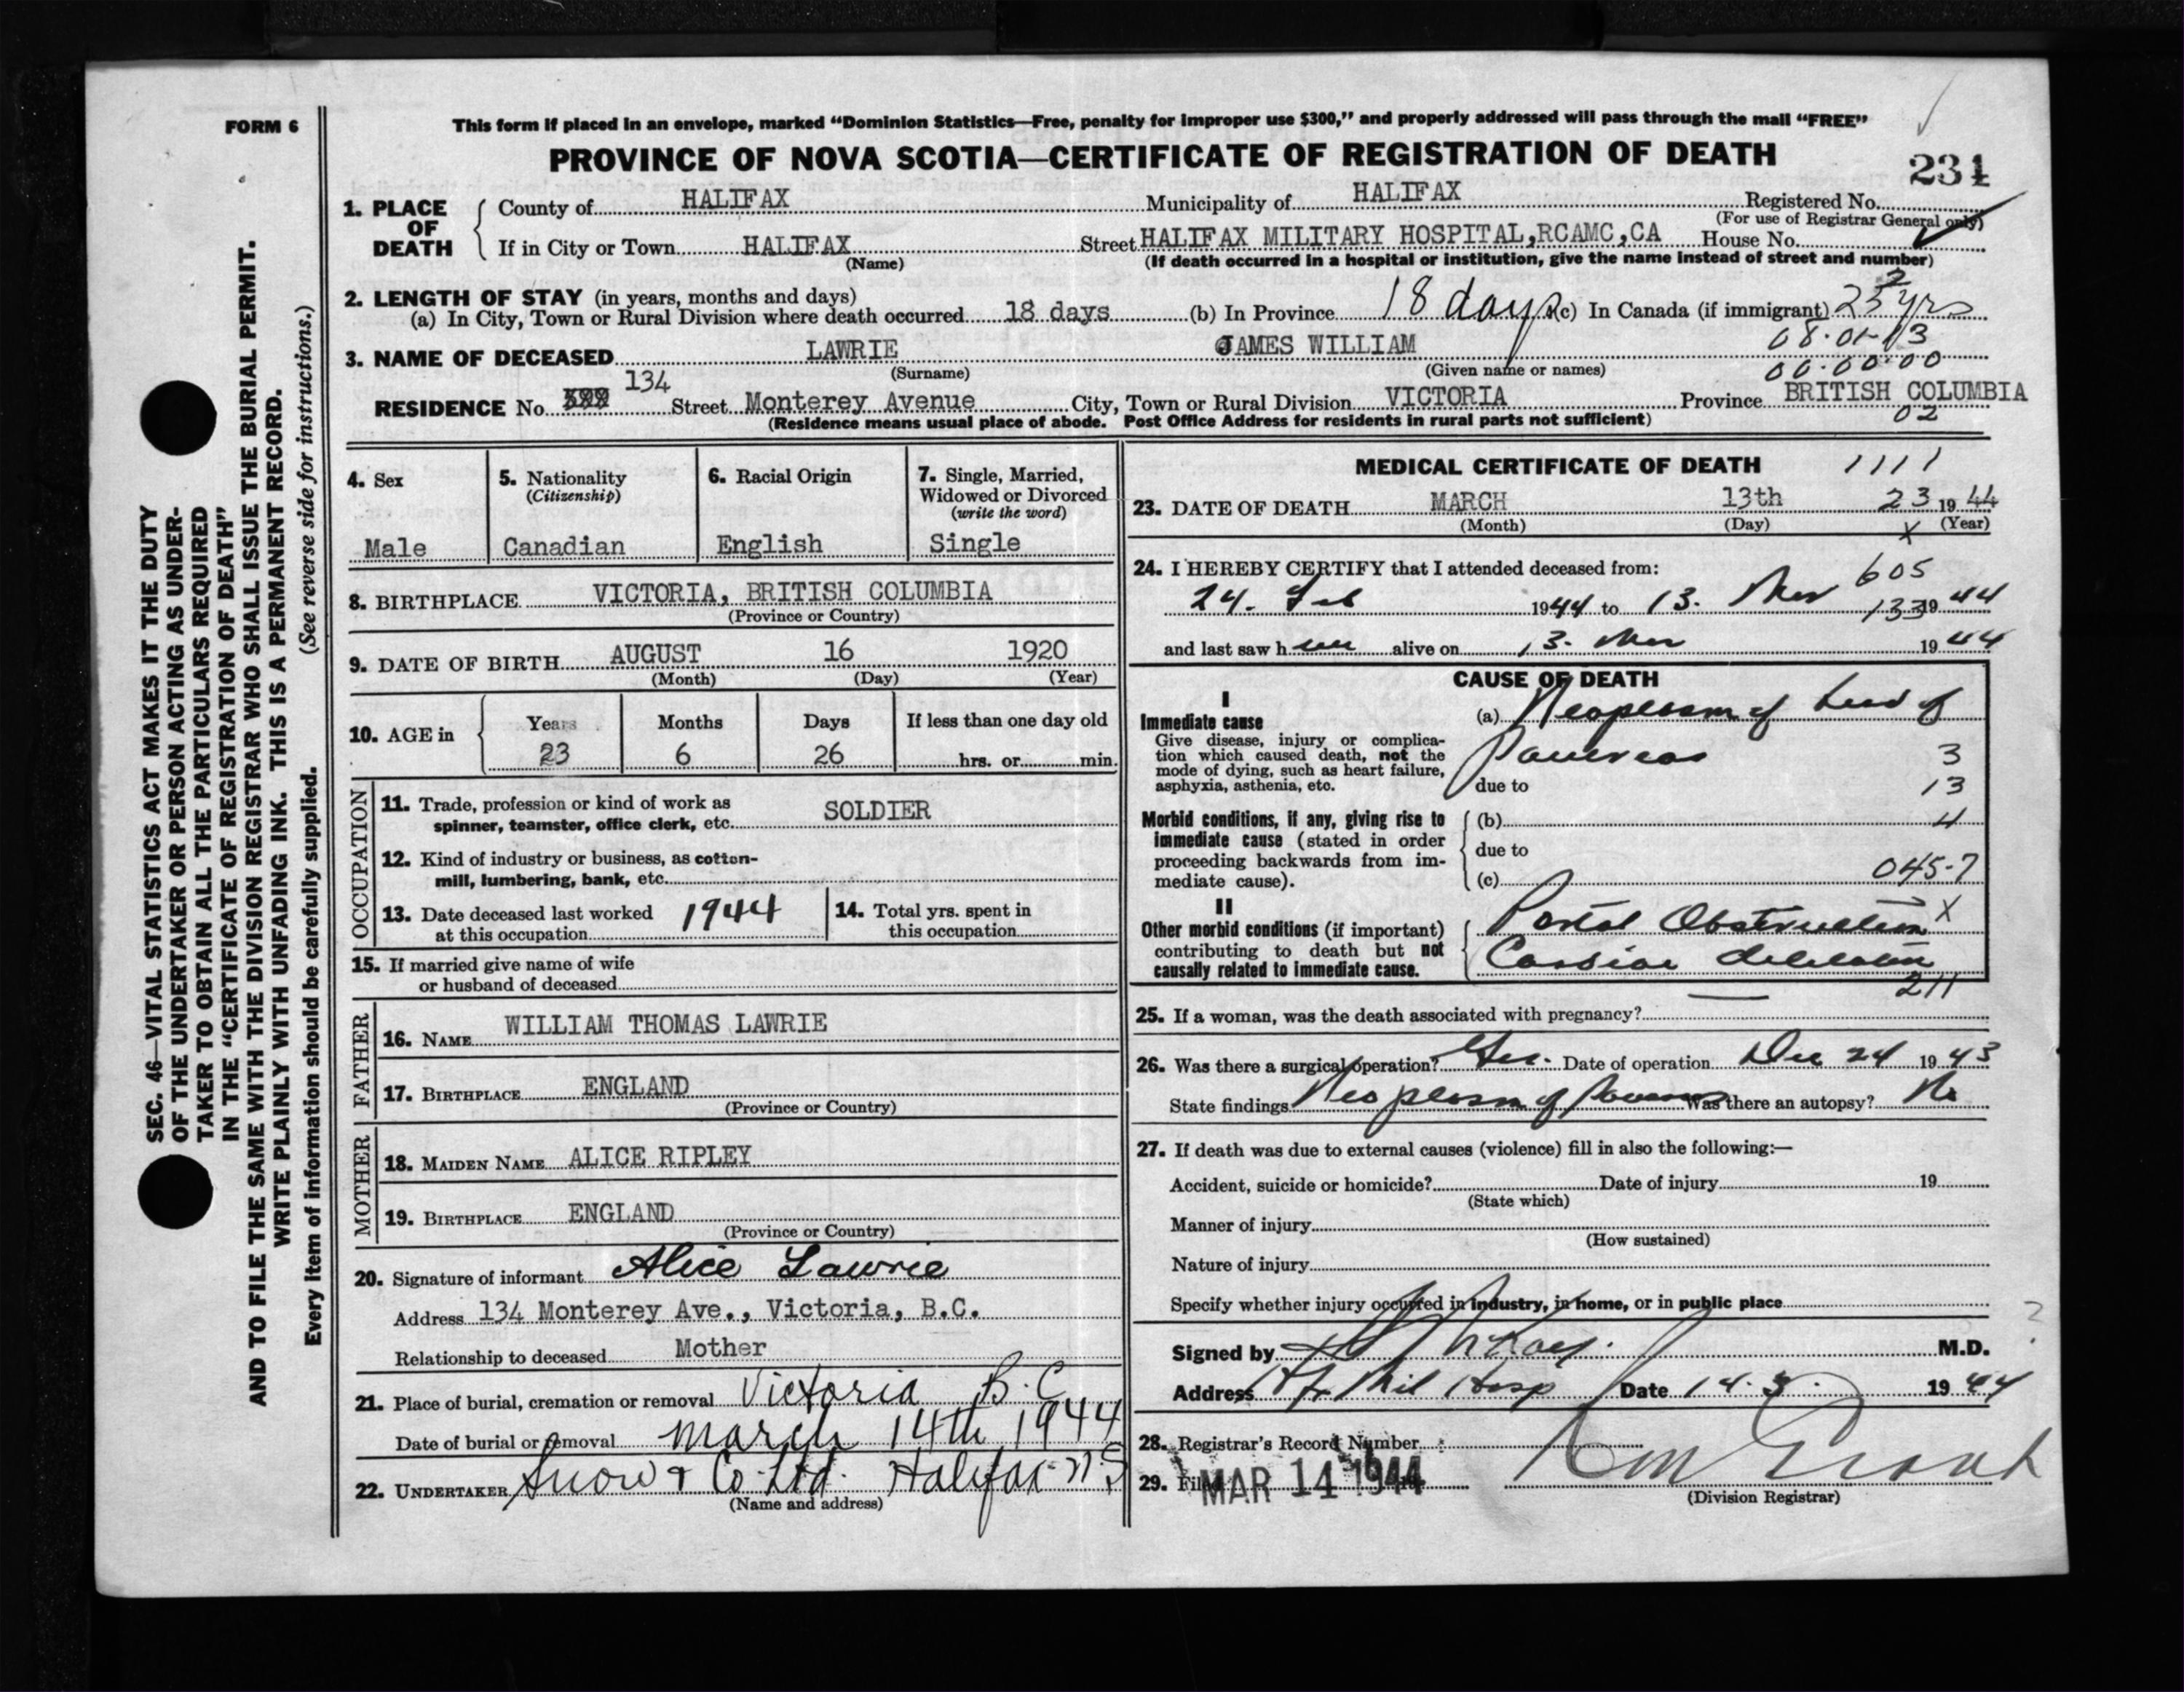 FORM 6
This form if placed in an envelope, marked “Dominion Statistics—Free, penalty for improper use $300,” and properly addressed will pass through the mail “FREE”
PROVINCE OF NOVA SCOTIA—CERTIFICATE OF REGISTRATION OF DEATH
231
1. PLACE OF DEATH
County of HALIFAX Municipality of HALIFAX Registered No.
(For use of Registrar General only)
If in City or Town HALIFAX Street HALIFAX MILITARY HOSPITAL,RCAMC,CA House No.
(Name) (If death occurred in a hospital or institution, give the name instead of street and number)
2. LENGTH OF STAY (in years, months and days)
(a) In City, Town or Rural Division where death occurred 18 days (b) In Province 18 days (c) In Canada (if immigrant) 23 yrs
08-01-13
3. NAME OF DECEASED LAWRIE JAMES WILLIAM
(Surname) (Given name or names) 00-00-00
RESIDENCE No. 134 Street Monterey Avenue City, Town or Rural Division VICTORIA Province BRITISH COLUMBIA
(Residence means usual place of abode. Post Office Address for residents in rural parts not sufficient) 02
4. Sex
Male
5. Nationality
(Citizenship)
Canadian
6. Racial Origin
English
7. Single, Married,
Widowed or Divorced
(write the word)
Single
8. BIRTHPLACE VICTORIA, BRITISH COLUMBIA
(Province or Country)
9. DATE OF BIRTH AUGUST 16 1920
(Month) (Day) (Year)
10. AGE in
Years Months Days If less than one day old
23 6 26 hrs. or min.
OCCUPATION
11. Trade, profession or kind of work as
spinner, teamster, office clerk, etc. SOLDIER
12. Kind of industry or business, as cotton-
mill, lumbering, bank, etc.
13. Date deceased last worked
at this occupation 1944
14. Total yrs. spent in
this occupation
15. If married give name of wife
or husband of deceased
FATHER
16. NAME WILLIAM THOMAS LAWRIE
17. BIRTHPLACE ENGLAND
(Province or Country)
MOTHER
18. MAIDEN NAME ALICE RIPLEY
19. BIRTHPLACE ENGLAND
(Province or Country)
20. Signature of informant Alice Lawrie
Address 134 Monterey Ave., Victoria, B.C.
Relationship to deceased Mother
21. Place of burial, cremation or removal Victoria B.C
Date of burial or removal march 14th 1944
22. UNDERTAKER Snow & Co. Ltd. Halifax NS
(Name and address)
MEDICAL CERTIFICATE OF DEATH 1111
23. DATE OF DEATH MARCH 13th 23 1944
(Month) (Day) x (Year)
24. I HEREBY CERTIFY that I attended deceased from: 605
24. Feb 1944 to 13. Mar 133 1944
and last saw him alive on 13. Mar 1944
CAUSE OF DEATH
I
Immediate cause
Give disease, injury or complica-
tion which caused death, not the
mode of dying, such as heart failure,
asphyxia, asthenia, etc.
(a) Neoplasm of head of
Pancreas 3
due to 13
Morbid conditions, if any, giving rise to
immediate cause (stated in order
proceeding backwards from im-
mediate cause).
(b) 4
due to
(c) 045-7
II
Other morbid conditions (if important)
contributing to death but not
causally related to immediate cause.
Portal Obstruction X
Cardiac dilatation
211
25. If a woman, was the death associated with pregnancy? —
26. Was there a surgical operation? Yes. Date of operation Dec 24 1943
State findings Neoplasm of Pancreas Was there an autopsy? No
27. If death was due to external causes (violence) fill in also the following:—
Accident, suicide or homicide? Date of injury 19
(State which)
Manner of injury
(How sustained)
Nature of injury
Specify whether injury occurred in industry, in home, or in public place
?
Signed by M.D.
Address Hfx Mil Hosp Date 14.3. 1944
28. Registrar's Record Number
29. Filed MAR 14 1944
(Division Registrar)
SEC. 46—VITAL STATISTICS ACT MAKES IT THE DUTY
OF THE UNDERTAKER OR PERSON ACTING AS UNDER-
TAKER TO OBTAIN ALL THE PARTICULARS REQUIRED
IN THE “CERTIFICATE OF REGISTRATION OF DEATH”
AND TO FILE THE SAME WITH THE DIVISION REGISTRAR WHO SHALL ISSUE THE BURIAL PERMIT.
WRITE PLAINLY WITH UNFADING INK. THIS IS A PERMANENT RECORD.
Every item of information should be carefully supplied. (See reverse side for instructions.)